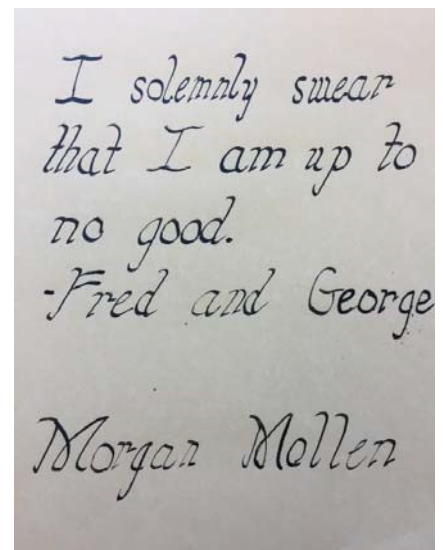 I solemnly swear
that I am up to
no good.
-Fred and George
Morgan Mollen